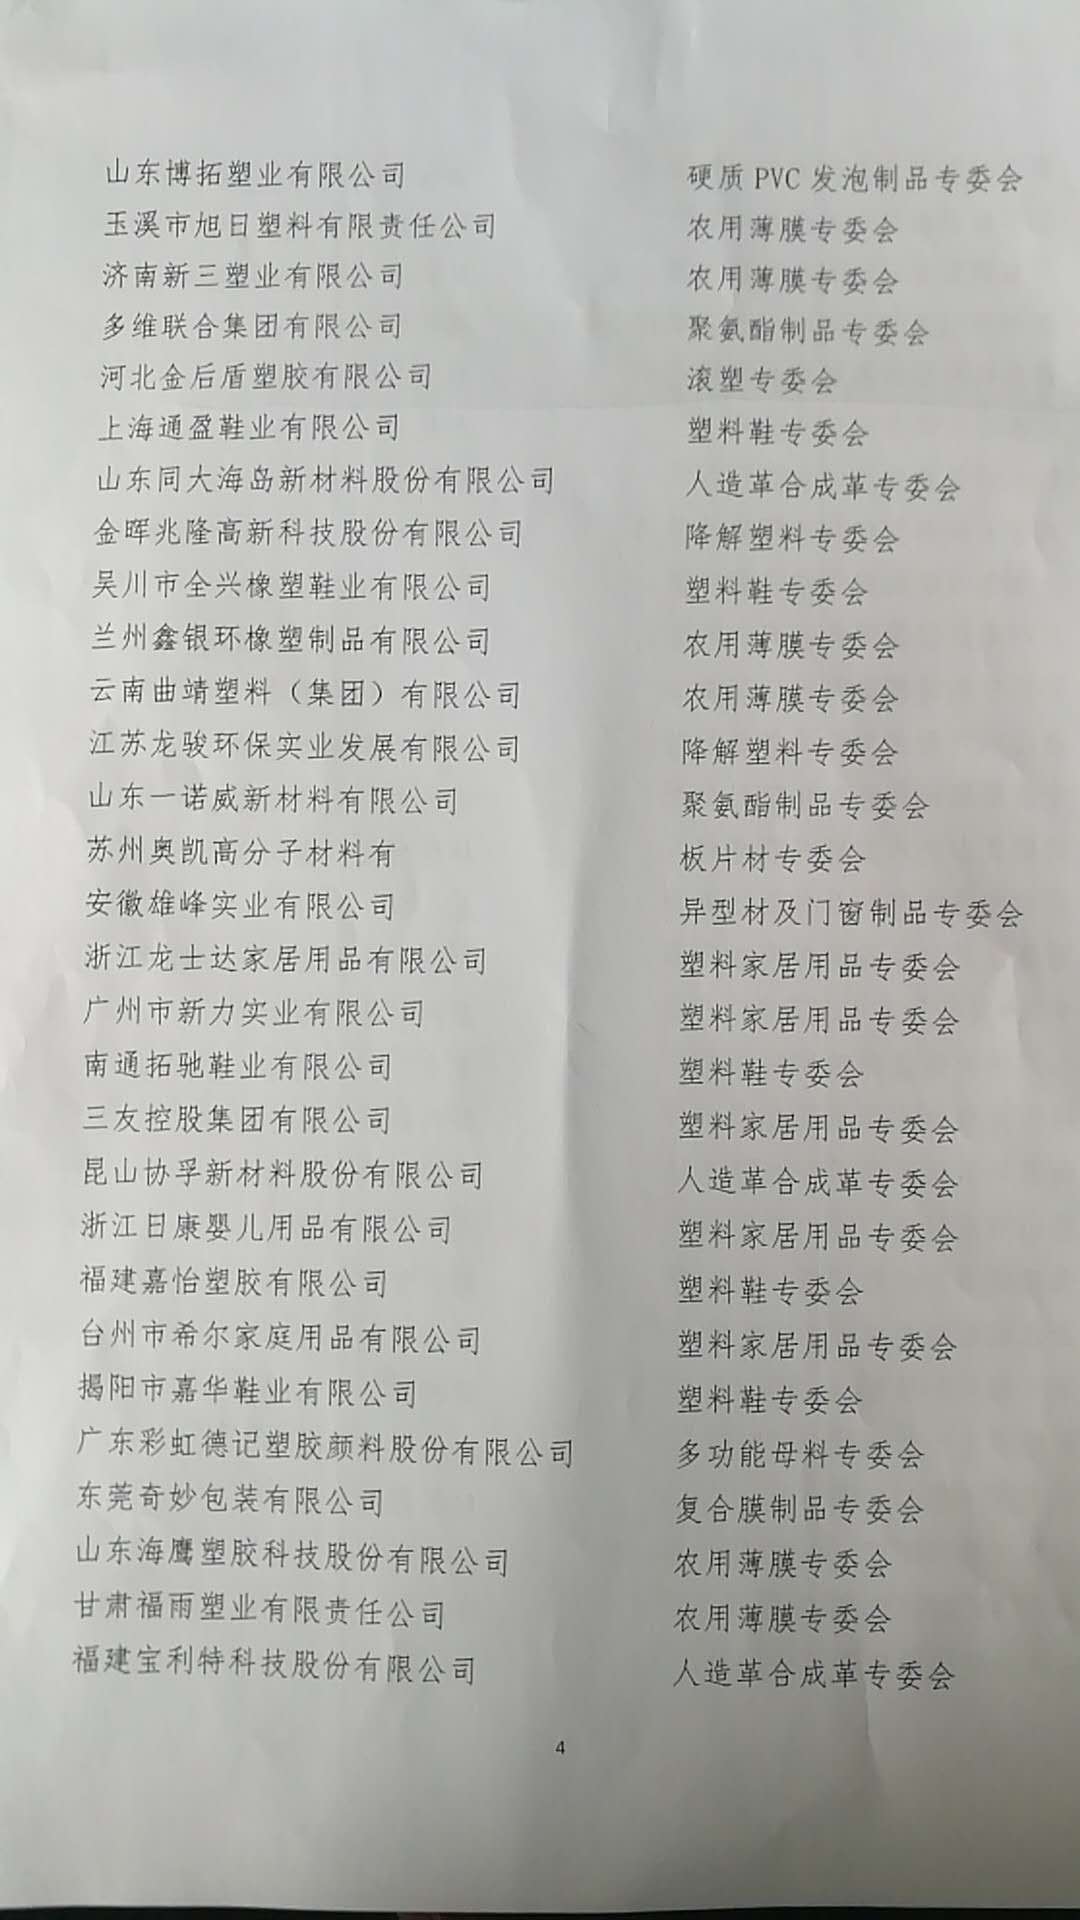 山东博拓塑业有限公司 硬质 PVC 发泡制品专委会
玉溪市旭日塑料有限责任公司 农用薄膜专委会
济南新三塑业有限公司 农用薄膜专委会
多维联合集团有限公司 聚氨酯制品专委会
河北金后盾塑胶有限公司 滚塑专委会
上海通盈鞋业有限公司 塑料鞋专委会
山东同大海岛新材料股份有限公司 人造革合成革专委会
金晖兆隆高新科技股份有限公司 降解塑料专委会
吴川市全兴橡塑鞋业有限公司 塑料鞋专委会
兰州鑫银环橡塑制品有限公司 农用薄膜专委会
云南曲靖塑料（集团）有限公司 农用薄膜专委会
江苏龙骏环保实业发展有限公司 降解塑料专委会
山东一诺威新材料有限公司 聚氨酯制品专委会
苏州奥凯高分子材料有 板片材专委会
安徽雄峰实业有限公司 异型材及门窗制品专委会
浙江龙士达家居用品有限公司 塑料家居用品专委会
广州市新力实业有限公司 塑料家居用品专委会
南通拓驰鞋业有限公司 塑料鞋专委会
三友控股集团有限公司 塑料家居用品专委会
昆山协孚新材料股份有限公司 人造革合成革专委会
浙江日康婴儿用品有限公司 塑料家居用品专委会
福建嘉怡塑胶有限公司 塑料鞋专委会
台州市希尔家庭用品有限公司 塑料家居用品专委会
揭阳市嘉华鞋业有限公司 塑料鞋专委会
广东彩虹德记塑胶颜料股份有限公司 多功能母料专委会
东莞奇妙包装有限公司 复合膜制品专委会
山东海鹰塑胶科技股份有限公司 农用薄膜专委会
甘肃福雨塑业有限责任公司 农用薄膜专委会
福建宝利特科技股份有限公司 人造革合成革专委会
4